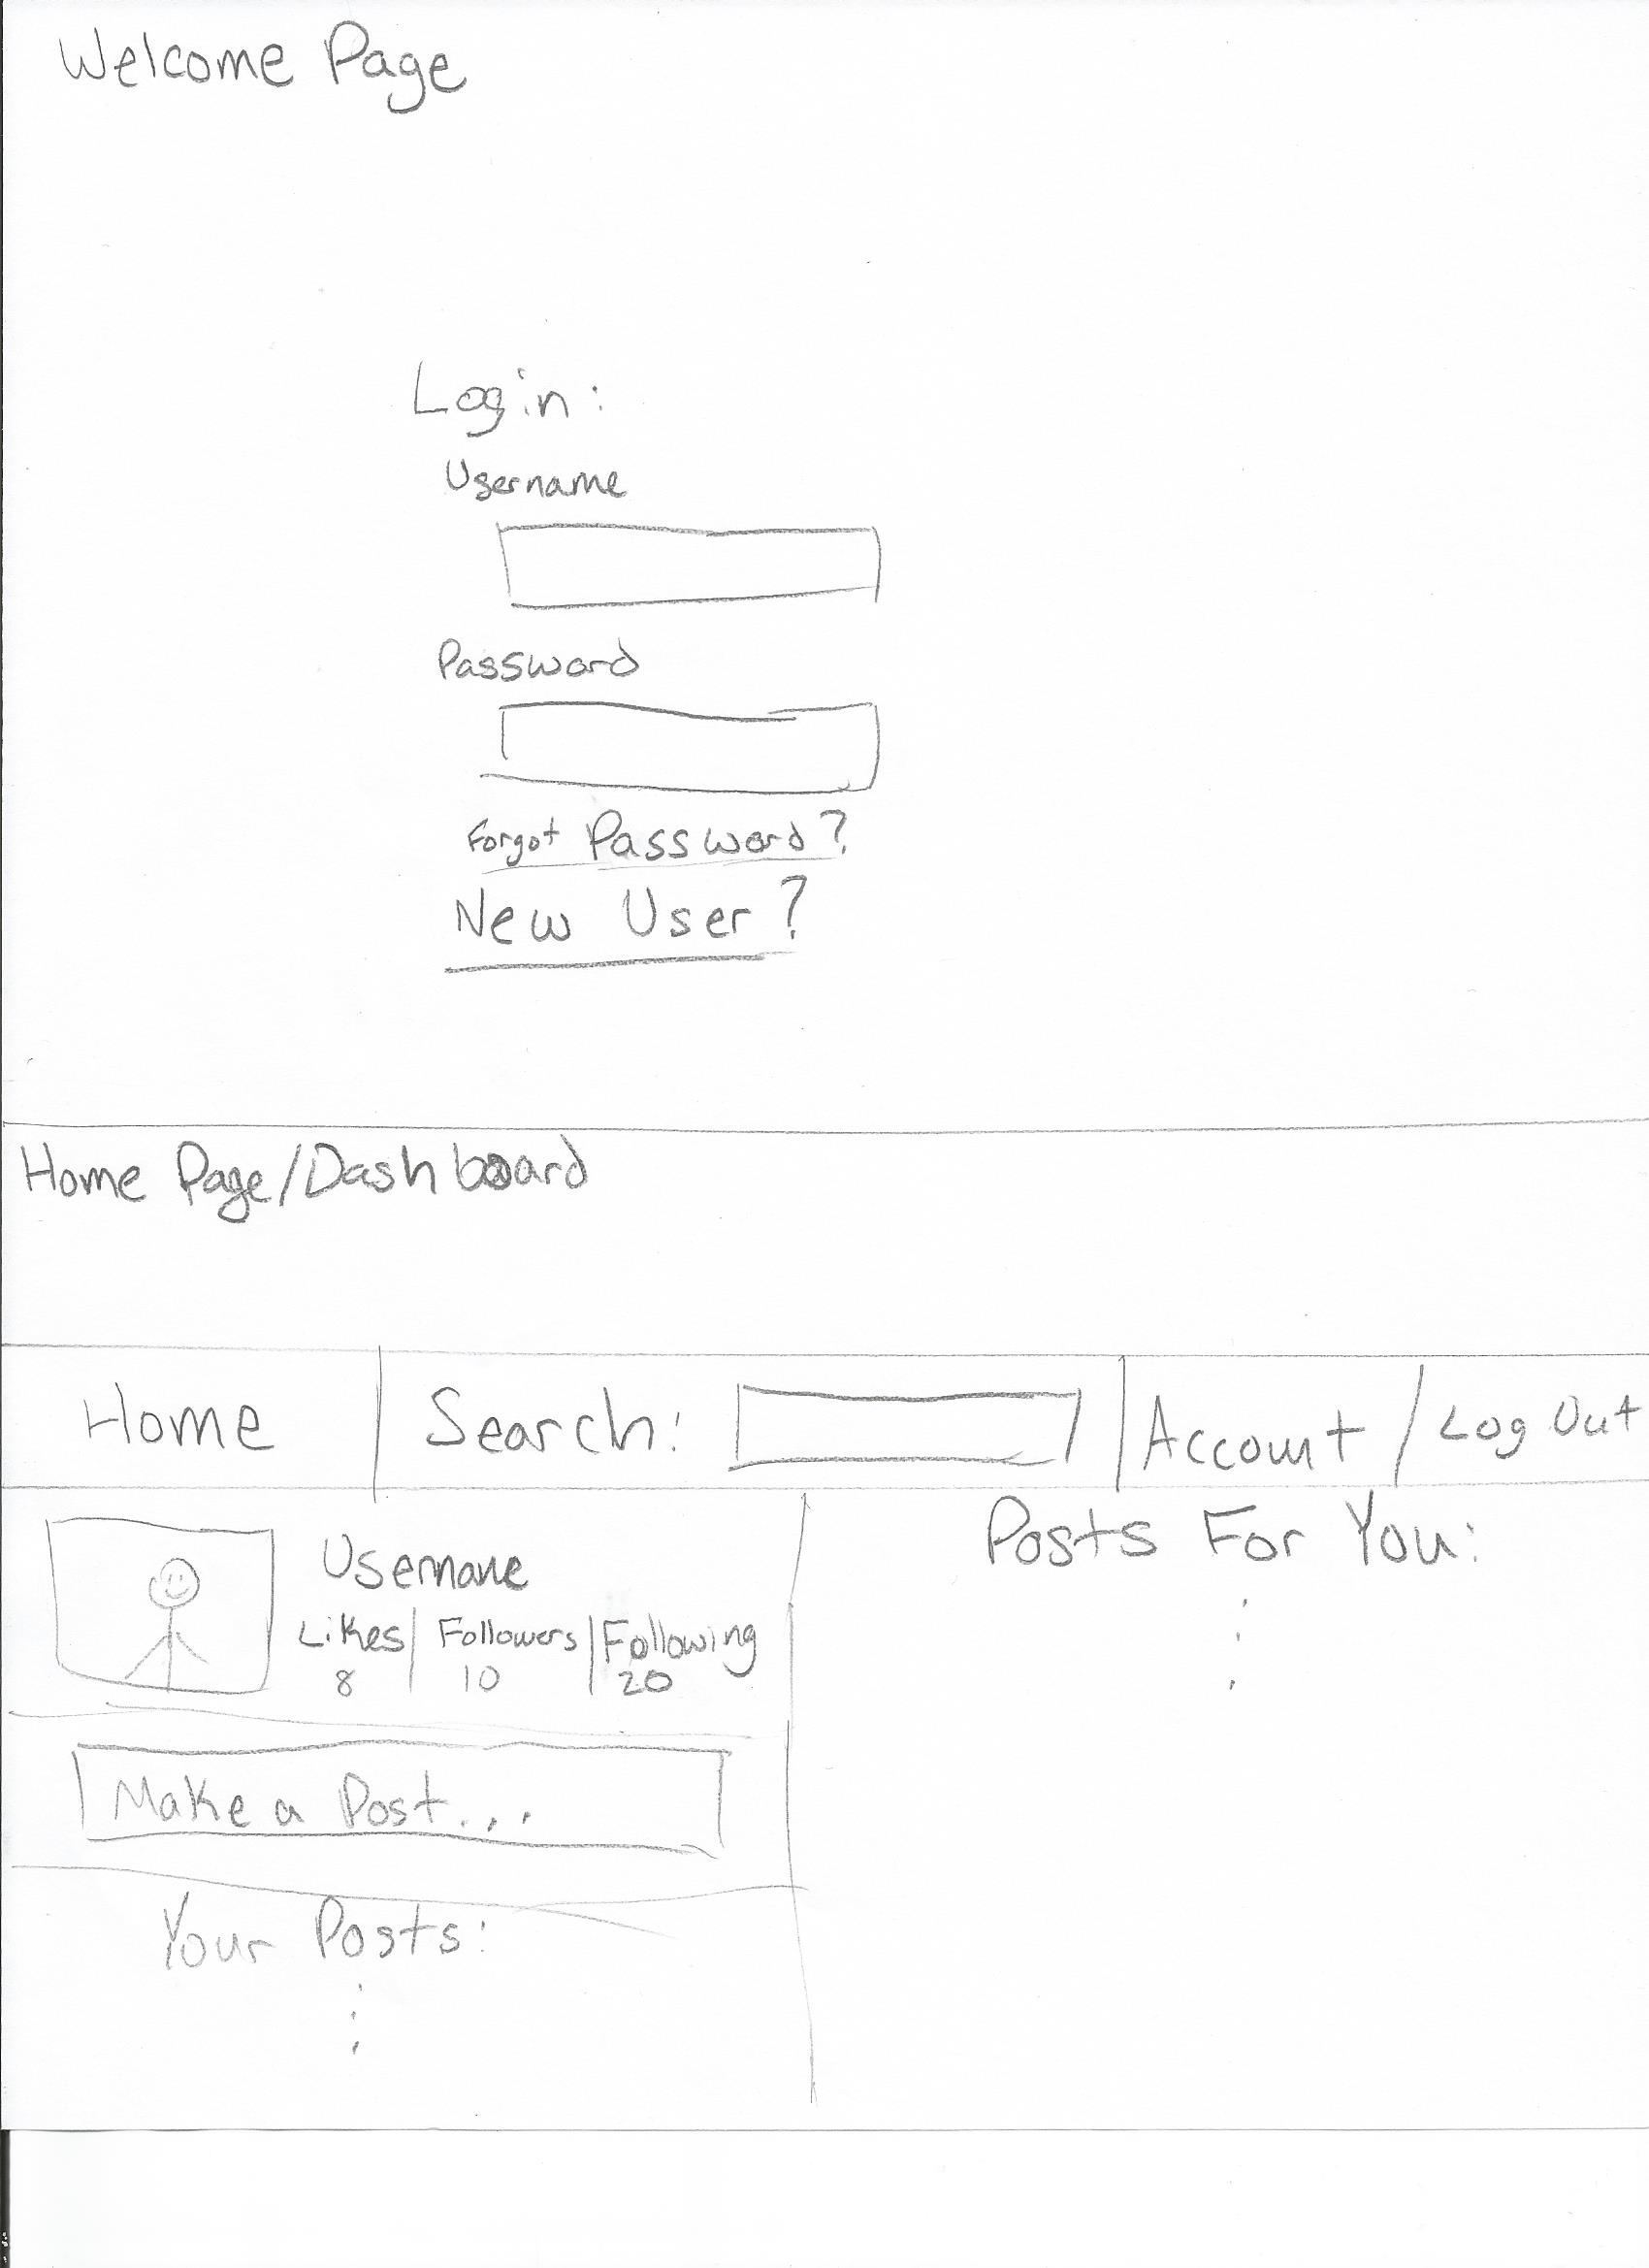 Welcome Page
Login:
Username
Password
Forgot Password?
New User?
Home Page/Dashboard
Home | Search: | Account / Log Out
Username
Likes | Followers | Following
8 | 10 | 20
Make a Post...
Your Posts:
Posts For You: